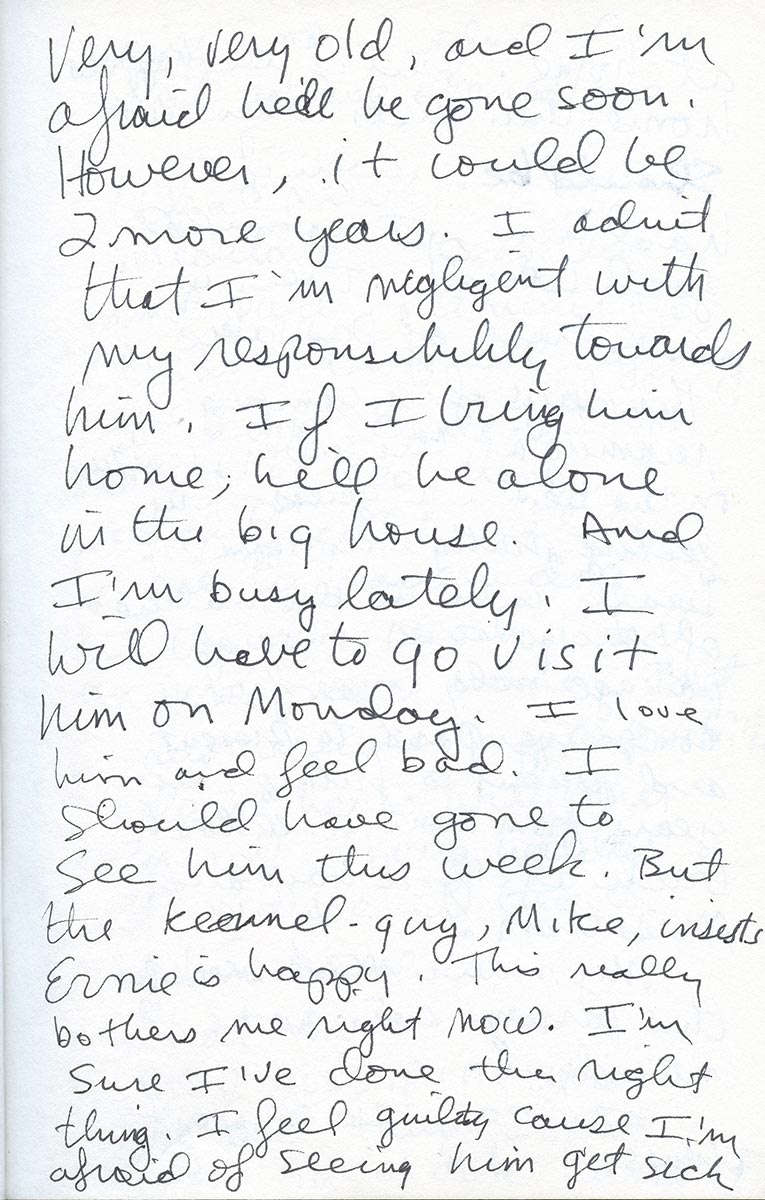 Very, very old, and I'm
afraid he'll be gone soon.
However, it could be
2 more years. I admit
that I'm negligent with
my responsibility towards
him. If I bring him
home, he'll be alone
in the big house. And
I'm busy lately. I
will have to go visit
him on Monday. I love
him and feel bad. I
should have gone to
see him this week. But
the kennel-guy, Mike, insists
Ernie is happy. This really
bothers me right now. I'm
sure I've done the right
thing. I feel guilty cause I'm
afraid of seeing him get sick